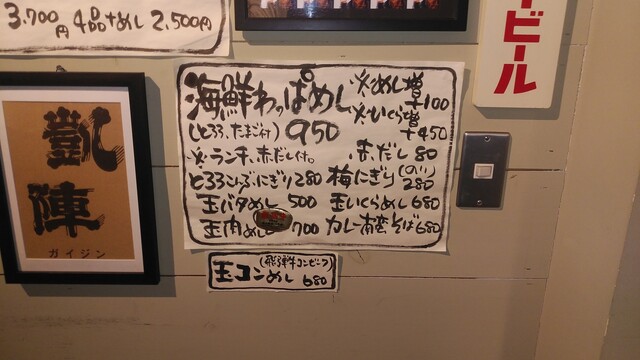 3.700円 4品+めし 2.500円
ビール
海鮮わっぱめし
※めし増+100
(とろろ、たまご付) 950
※いくら増+450
※ランチ、赤だし付。
赤だし 80
とろろこんぶにぎり 280
梅にぎり(のり) 280
玉バタめし 500
玉いくらめし 680
玉肉めし 700
カレー南蛮そば 680
玉コンめし(飛騨牛コンビーフ) 680
凱陣
ガイジン